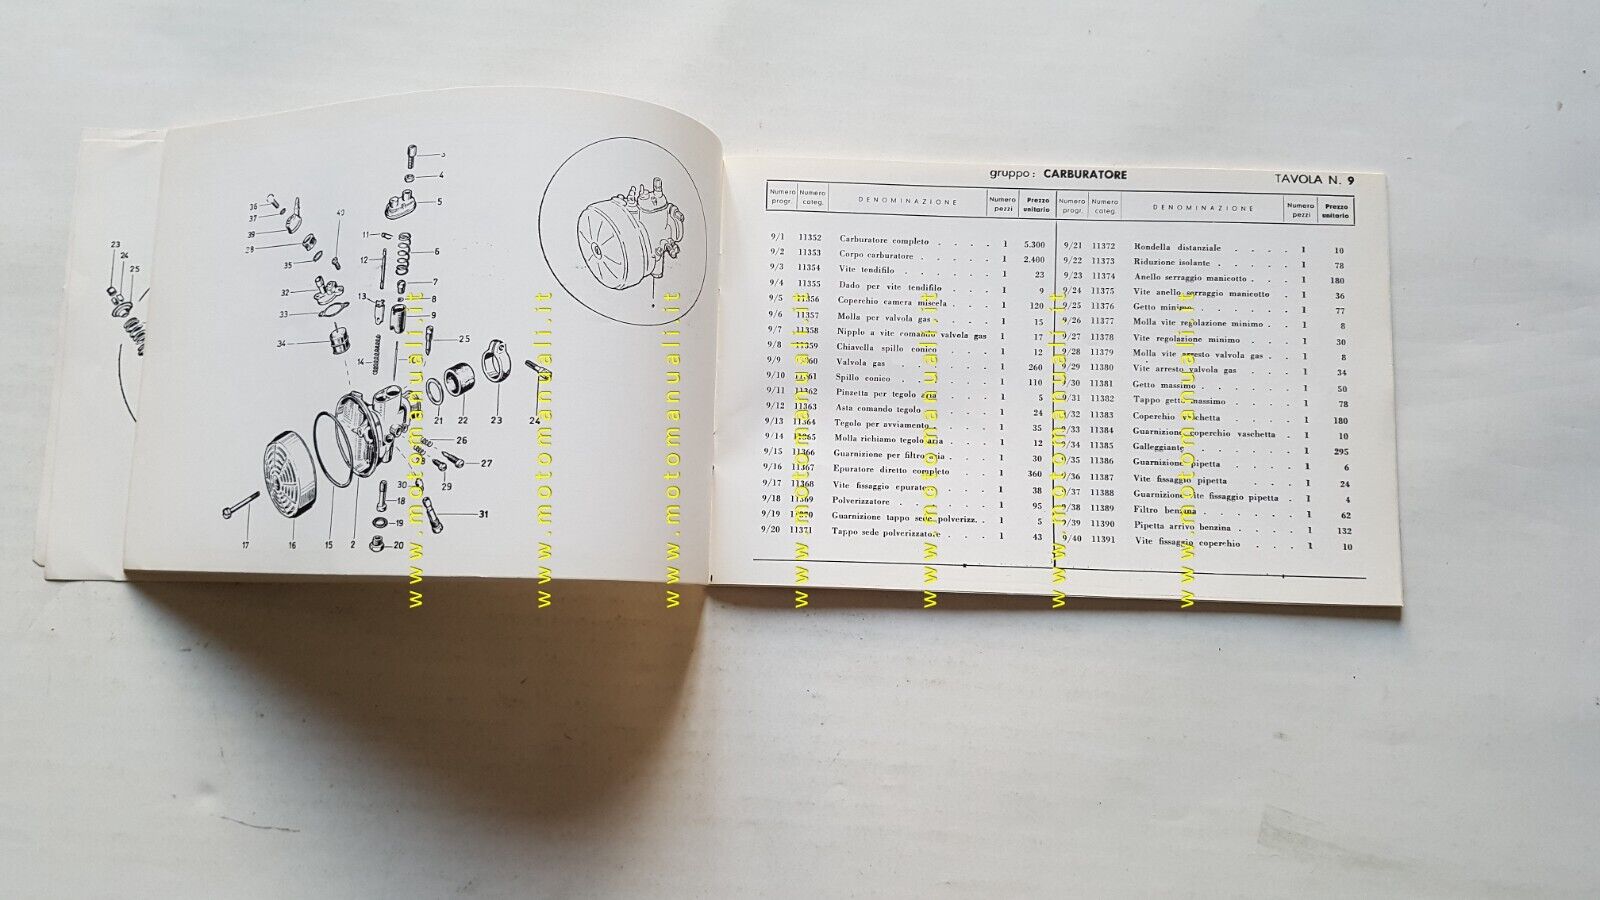 gruppo: CARBURATORE
TAVOLA N. 9
Numero progr. Numero categ. DENOMINAZIONE Numero pezzi Prezzo unitario
9/1 11352 Carburatore completo . . . . 1 5.300
9/2 11353 Corpo carburatore . . . . 1 2.400
9/3 11354 Vite tendifilo . . . . 1 23
9/4 11355 Dado per vite tendifilo . . . 1 9
9/5 11356 Coperchio camera miscela . . 1 120
9/6 11357 Molla per valvola gas . . . 1 15
9/7 11358 Nipplo a vite comando valvola gas 1 17
9/8 11359 Chiavella spillo conico . . . 1 12
9/9 11360 Valvola gas . . . . 1 260
9/10 11361 Spillo conico . . . . 1 110
9/11 11362 Pinzetta per tegolo aria . . . 1 5
9/12 11363 Asta comando tegolo . . . 1 24
9/13 11364 Tegolo per avviamento . . . 1 35
9/14 11365 Molla richiamo tegolo aria . . . 1 12
9/15 11366 Guarnizione per filtro aria . . . 1 30
9/16 11367 Epuratore diretto completo . . . 1 360
9/17 11368 Vite fissaggio epuratore . . . 1 38
9/18 11369 Polverizzatore . . . . 1 95
9/19 11370 Guarnizione tappo sede polverizz. . 1 5
9/20 11371 Tappo sede polverizzatore . . . 1 43
Numero progr. Numero categ. DENOMINAZIONE Numero pezzi Prezzo unitario
9/21 11372 Rondella distanziale . . . . 1 10
9/22 11373 Riduzione isolante . . . . 1 78
9/23 11374 Anello serraggio manicotto . . . 1 180
9/24 11375 Vite anello serraggio manicotto . 1 36
9/25 11376 Getto minimo . . . . 1 77
9/26 11377 Molla vite regolazione minimo . . 1 8
9/27 11378 Vite regolazione minimo . . . 1 30
9/28 11379 Molla vite arresto valvola gas . . 1 8
9/29 11380 Vite arresto valvola gas . . . 1 34
9/30 11381 Getto massimo . . . . 1 50
9/31 11382 Tappo getto massimo . . . 1 78
9/32 11383 Coperchio vaschetta . . . . 1 180
9/33 11384 Guarnizione coperchio vaschetta . 1 10
9/34 11385 Galleggiante . . . . 1 295
9/35 11386 Guarnizione pipetta . . . . 1 6
9/36 11387 Vite fissaggio pipetta . . . 1 24
9/37 11388 Guarnizione vite fissaggio pipetta . 1 4
9/38 11389 Filtro benzina . . . . 1 62
9/39 11390 Pipetta arrivo benzina . . . 1 132
9/40 11391 Vite fissaggio coperchio . . . 1 10
23
24
25
3
4
5
36
37
39
38
35
40
32
33
34
11
12
13
14
6
7
8
9
25
21
22
23
24
26
27
28
29
30
31
18
19
20
17
16
15
2
www.motomanuali.it
www.motomanuali.it
www.motomanuali.it
www.motomanuali.it
www.motomanuali.it
www.motomanuali.it
www.motomanuali.it